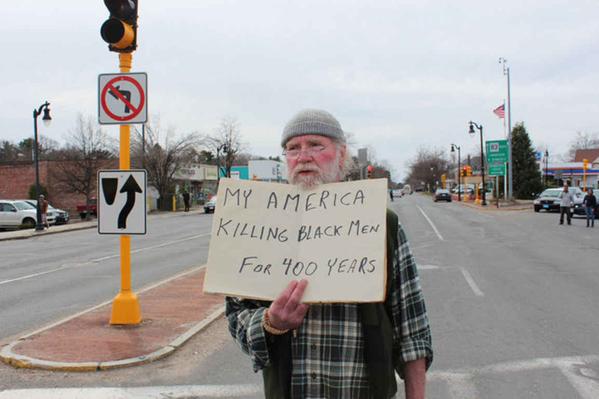 MY AMERICA
KILLING BLACK MEN
FOR 400 YEARS